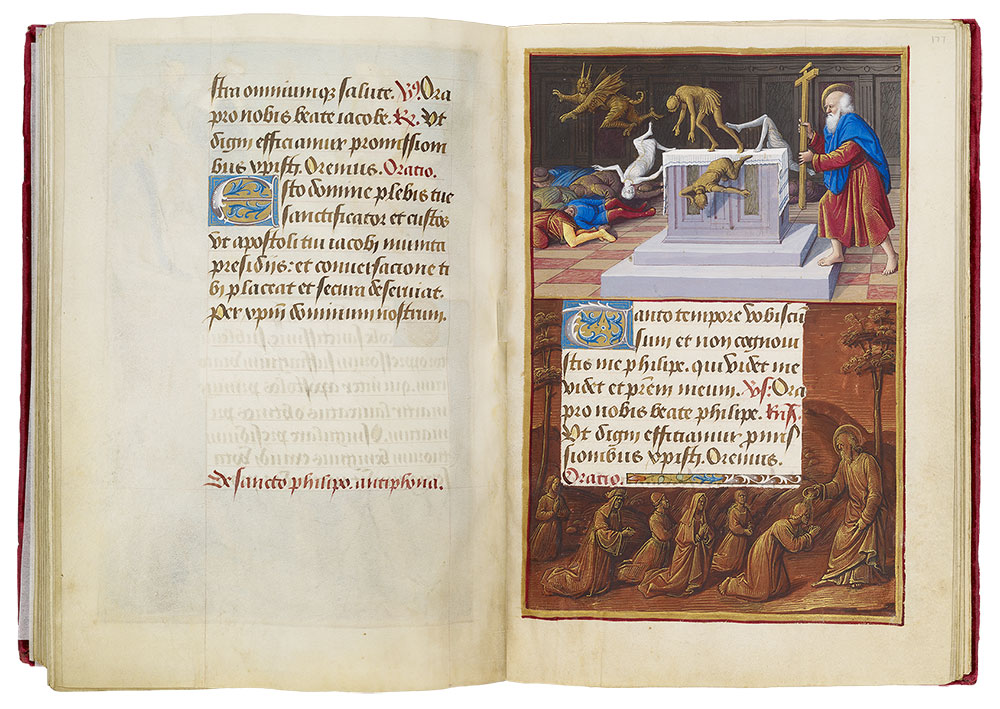 stra omniumqꝫ salute. V̷s. Ora
pro nobis beate iacobe. R̷. Ut
digni efficiamur promission
ibus xp̄isti. Oremus. Oratio.
Esto domine plebis tue
sanctificator et custos
ut apostoli tui iacobi munita
presidijs: et conversacione ti
bi placeat et secura deserviat.
Per xp̄m dominum nostrum.
de sancto philipo. antiphona.
177
Tanto tempore vobiscū
sum et non cognovi
stis me philipe. qui videt me
videt et pr̄em meum. V̷s: Ora
pro nobis beate philipe.
Ut digni efficiamur
ssionibus xp̄isti. Oremus.
Oratio.